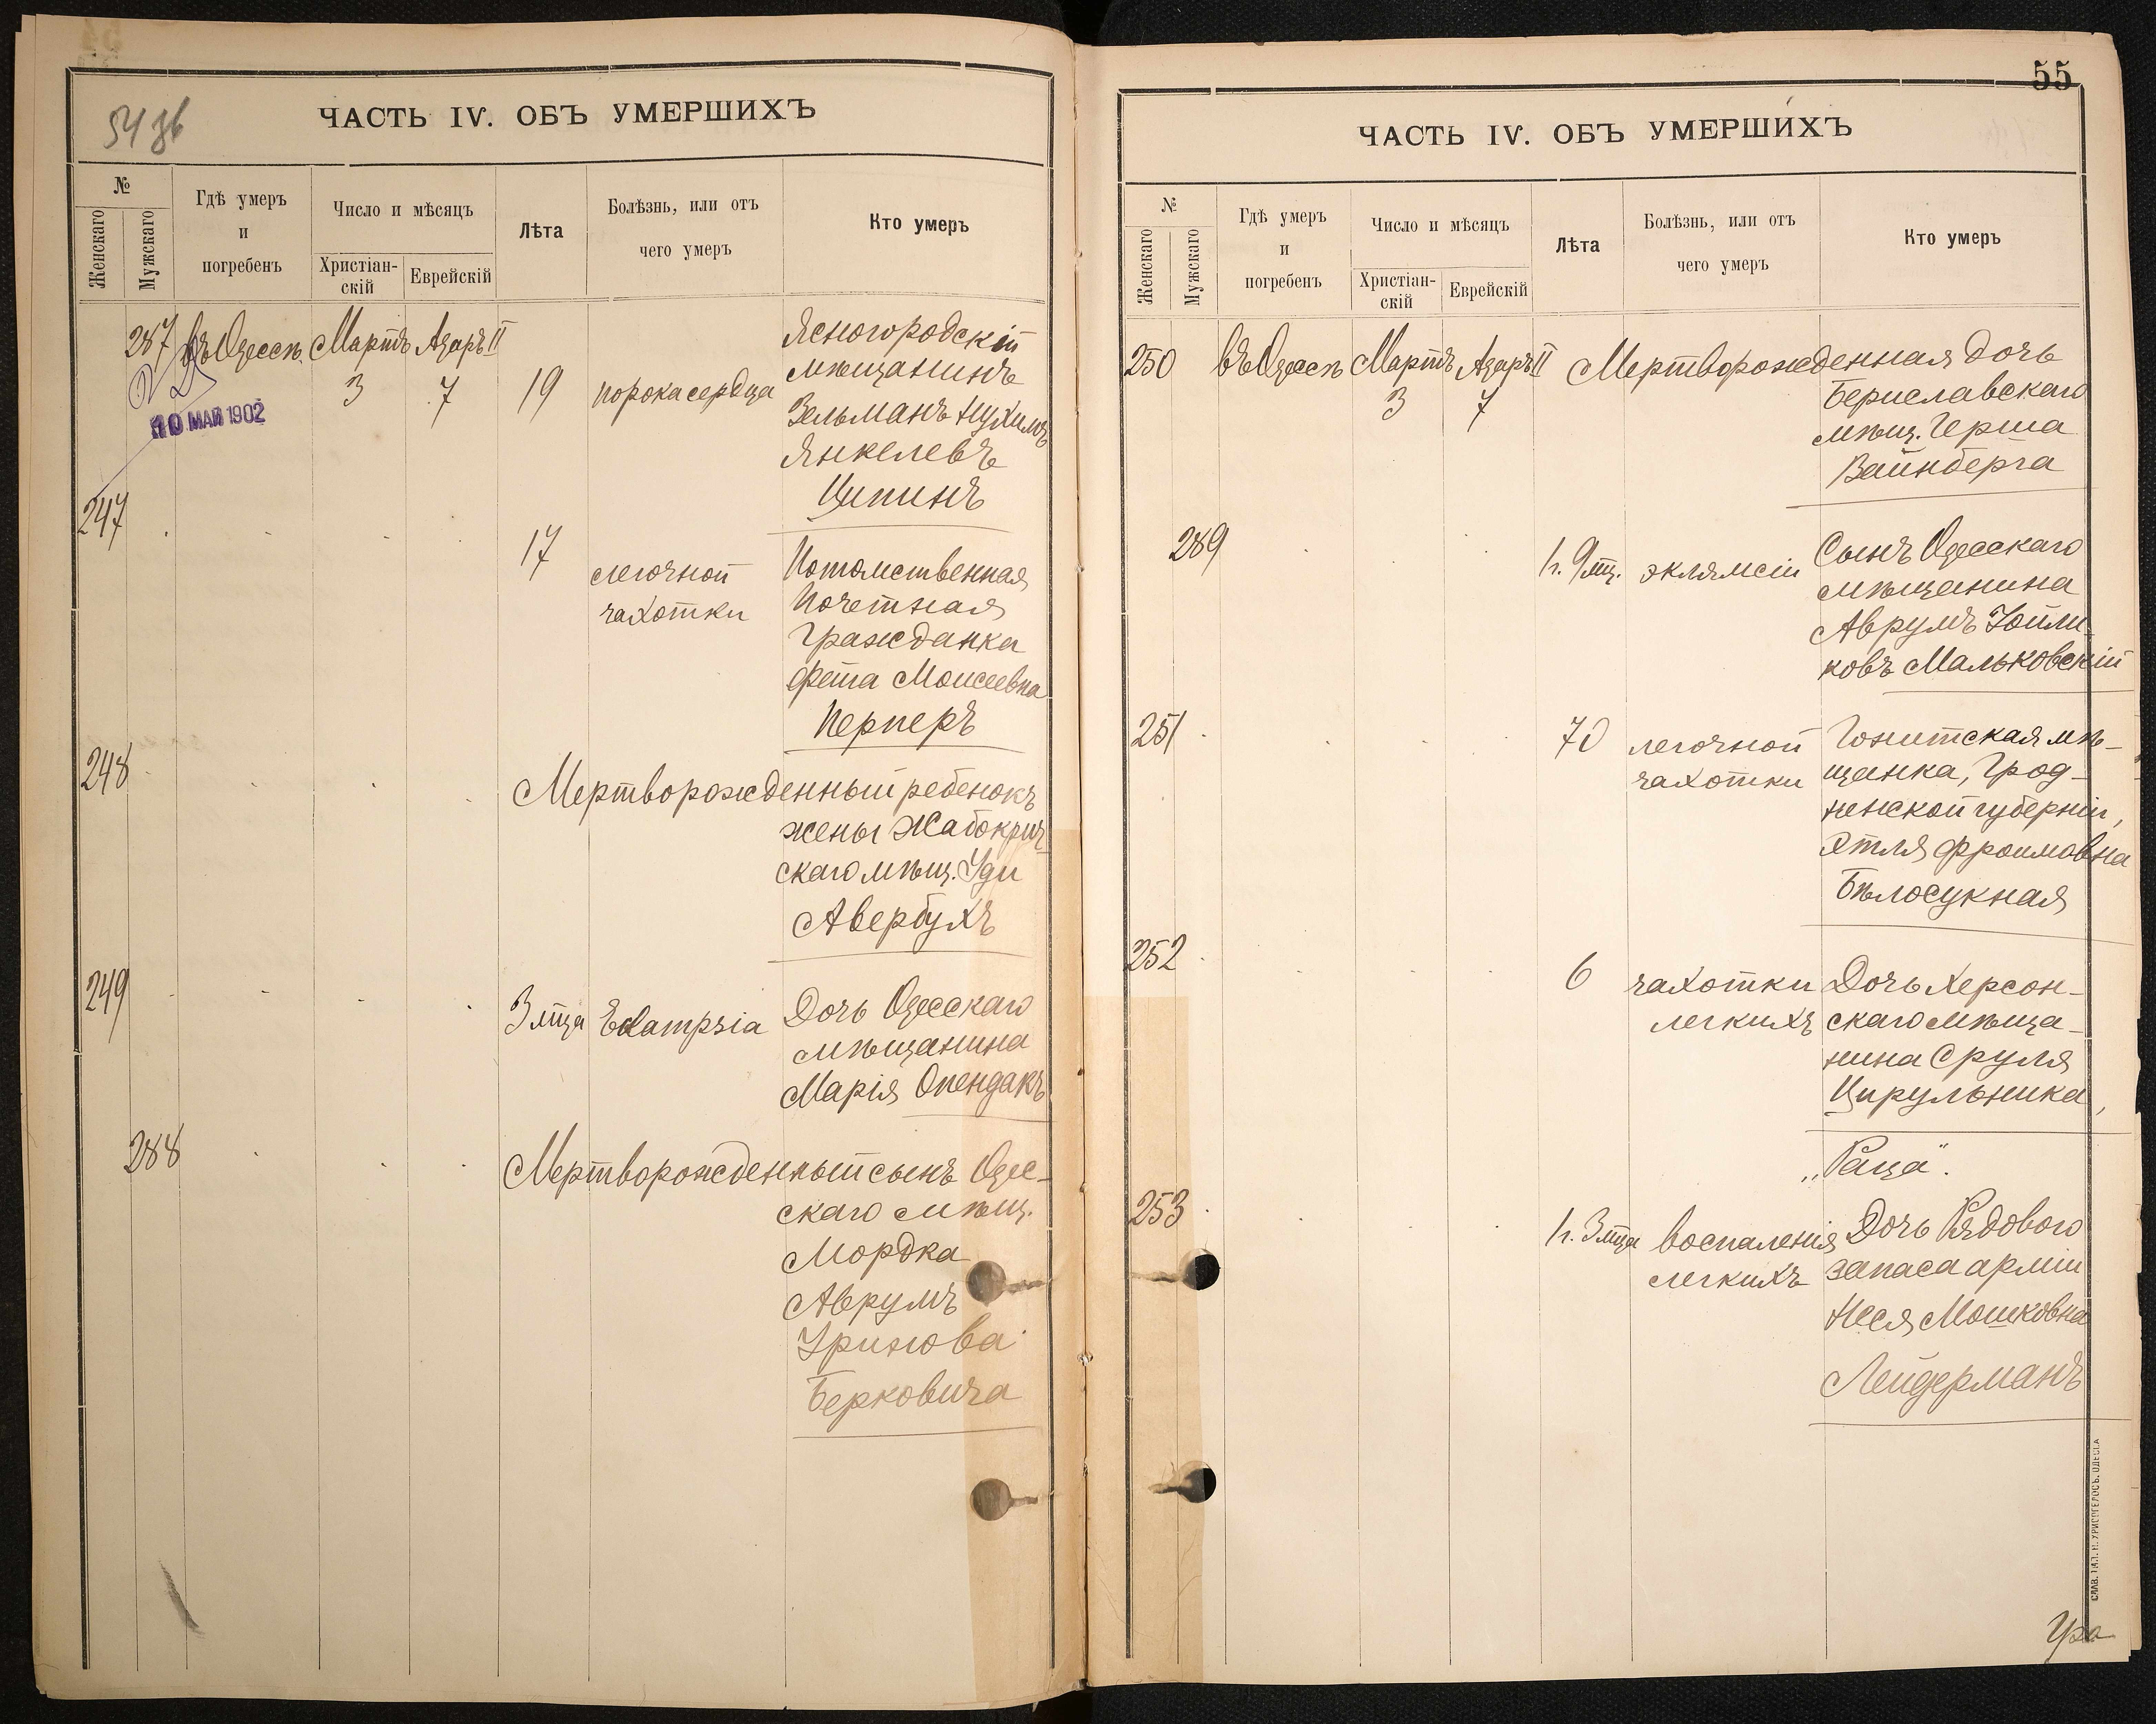 54 зв
ЧАСТЬ IV. ОБЪ УМЕРШИХЪ
№
Женскаго
Мужскаго
Гдѣ умеръ
и
погребенъ
Число и мѣсяцъ
Христіан-
скій
Еврейскій
Лѣта
Болѣзнь, или отъ
чего умеръ
Кто умеръ
287 въ Одессѣ Мартъ Адаръ II
3 7 19 порока сердца
Ясногородскій
мѣщанинъ
Зельманъ Нухимъ
Янкелевъ
Ципинъ
10 МАЯ 1902
247
17 легочной
чахотки
Потомственная
Почетная
Гражданка
Фейга Моисеевна
Перперъ
248
Мертворожденный ребенокъ
жены Жабокрич-
скаго мѣщ. Уди
Авербухъ
249
3 мца Eclampsia Дочь Одесскаго
мѣщанина
Марія Опендакъ
288
Мертворожденный сынъ Одес-
скаго мѣщ.
Мордка
Аврумъ
Беркoвича
55
ЧАСТЬ IV. ОБЪ УМЕРШИХЪ
№
Женскаго
Мужскаго
Гдѣ умеръ
и
погребенъ
Число и мѣсяцъ
Христіан-
скій
Еврейскій
Лѣта
Болѣзнь, или отъ
чего умеръ
Кто умеръ
250 въ Одессѣ Мартъ Адаръ II Мертворожденная дочь
3 7
Бериславскаго
мѣщ. Герша
Вайнберга
289
1 г. 9 мц. эклямсіи Сынъ Одесскаго
мѣщанина
Аврумъ Іойли-
ковъ Мальковскій
251
70 легочной
чахотки
мѣ-
щанка, Грод-
ненской губерніи,
Этля Фроимовна
Бѣлосукная
252
6 чахотки
легкихъ
Дочь Херсон-
скаго мѣща-
нина Сруля
Цирульника,
„Раца“.
253
1 г. 3 мца воспаленія
легкихъ
Дочь Рядового
запаса арміи
Неся Мошковна
Лейдерманъ